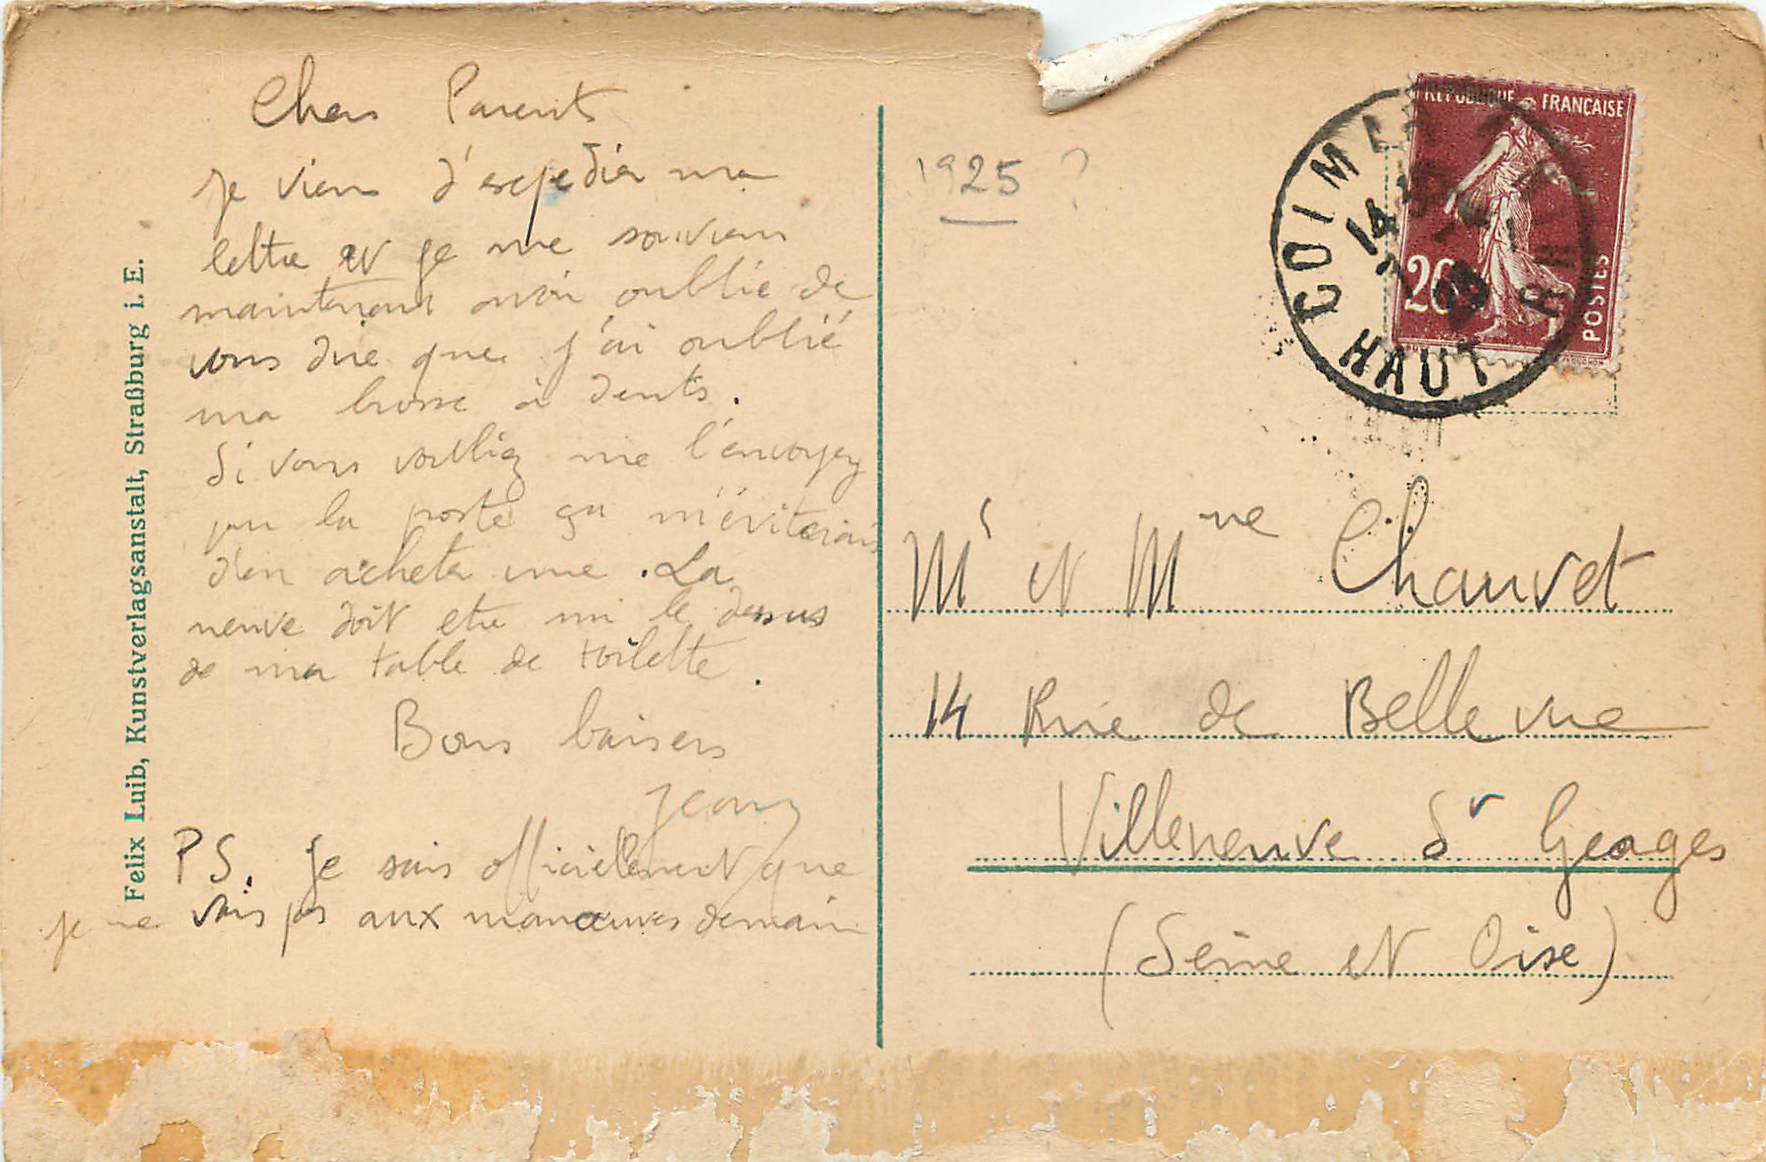 Chers Parents
je viens d'expédier ma
lettre et je me souviens
maintenant avoir oublié de
vous dire que j'ai oublié
ma brosse à dents.
Si vous vouliez me l'envoyer
par la poste ça m'éviterais
d'en acheter une. La
neuve doit etre sur le dessus
de ma table de toilette.
Bons baisers
Jean
PS. Je sais officiellement que
je ne vais pas aux manœuvres demain
Felix Luib, Kunstverlagsanstalt, Straßburg i. E.
1925 ?
REPUBLIQUE FRANÇAISE
20
POSTES
COLMAR
14
HAUT RHIN
Mr et Mme Chauvet
14 Rue de Bellevue
Villeneuve St Georges
(Seine et Oise)